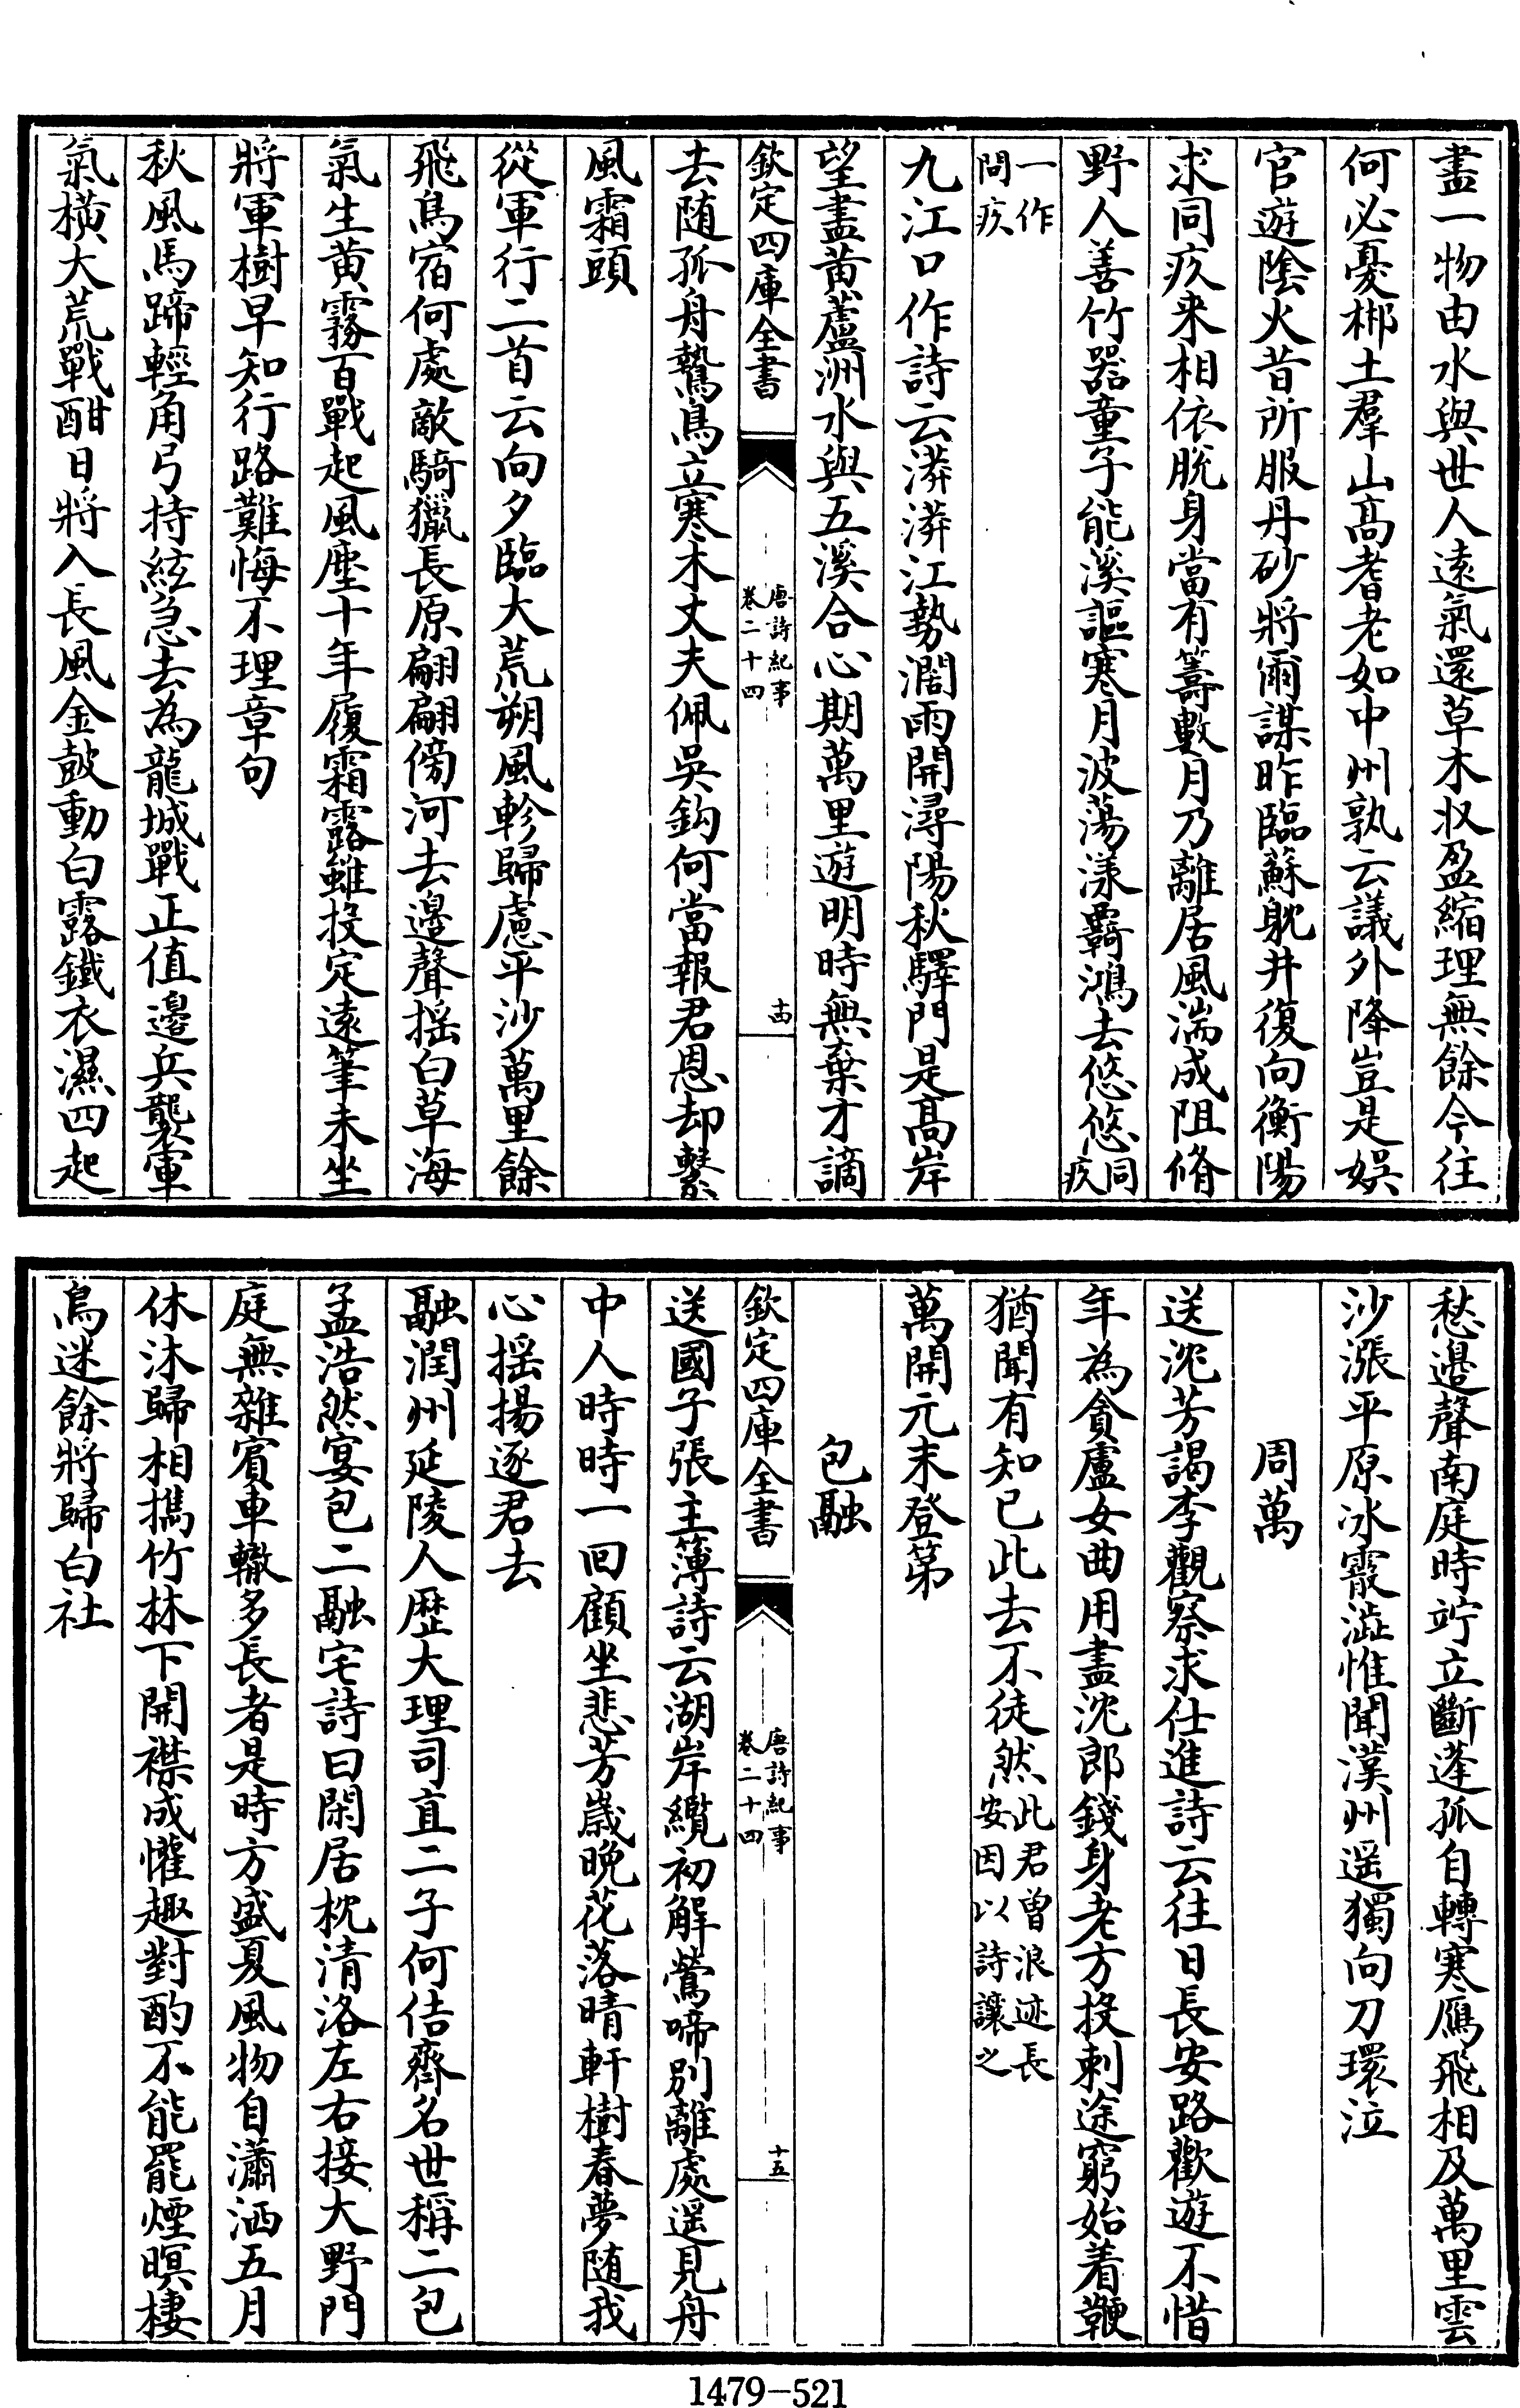 盡一物由水與世人逺氣還草木収盈縮理無餘今往
何必憂郴土羣山髙耆老如中州孰云議外降豈是娯
官遊隂火昔所服丹砂將爾謀昨臨蘇躭井復向衡陽
求同疚来相依脱身當有籌數月乃離居風湍成阻脩
野人善竹器童子能溪謳寒月波蕩漾覊鴻去悠悠同疚
一作問疚
九江口作詩云漭漭江勢濶雨開潯陽秋驛門是髙岸
望盡黄蘆洲水與五溪合心期萬里遊明時無棄才謫
欽定四庫全書 唐詩紀事 卷二十四 十四
去随孤舟鷙鳥立寒木丈夫佩吳鈎何當報君恩却繫
風霜頭
從軍行二首云向夕臨大荒朔風軫歸慮平沙萬里餘
飛鳥宿何處敵騎獵長原翩翩傍河去邉聲揺白草海
氣生黄霧百戰起風塵十年履霜露雖投定逺筆未坐
將軍樹早知行路難悔不理章句
秋風馬蹄輕角弓持絃急去為龍城戰正值邉兵襲軍
氣横大荒戰酣日將入長風金鼓動白露鐵衣濕四起
愁邉聲南庭時竚立斷蓬孤自轉寒鴈飛相及萬里雲
沙漲平原冰霰澁惟聞漢州遥獨向刀環泣
周萬
送沈芳謁李觀察求仕進詩云往日長安路歡遊不惜
年為貪盧女曲用盡沈郎錢身老方投刺途窮始着鞭
猶聞有知己此去不徒然此君曽浪迹長安因以詩讓之
萬開元末登第
包融
送國子張主簿詩云湖岸纜初解鶯啼别離處遥見舟
欽定四庫全書 唐詩紀事 卷二十四 十五
中人時時一回顧坐悲芳嵗晚花落晴軒樹春夢随我
心揺揚逐君去
融潤州延陵人歴大理司直二子何佶齊名世稱二包
孟浩然宴包二融宅詩曰閑居枕清洛左右接大野門
庭無雜賓車轍多長者是時方盛夏風物自瀟洒五月
休沐歸相攜竹林下開襟成懽趣對酌不能罷煙暝棲
鳥迷餘將歸白社
1479-521